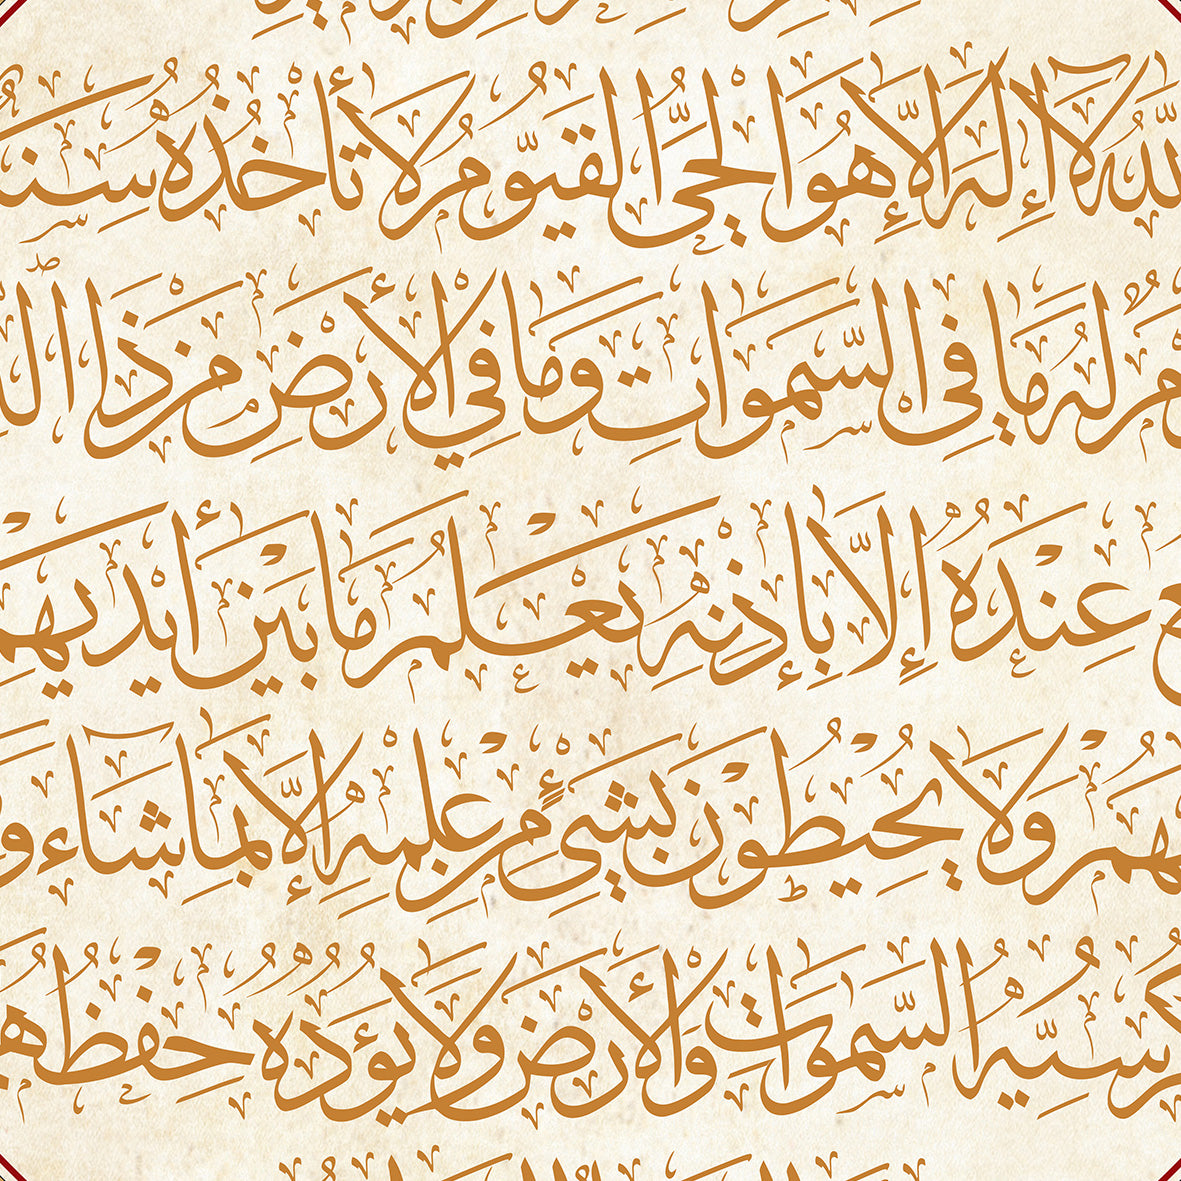 الله لا إله إلا هو الحي القيوم لا تأخذه سنة
له ما في السموات وما في الأرض من ذا
عنده إلا بإذنه يعلم ما بين أيديهم
ولا يحيطون بشيء من علمه إلا بما شاء
كرسيه السموات والأرض ولا يؤده حفظهما